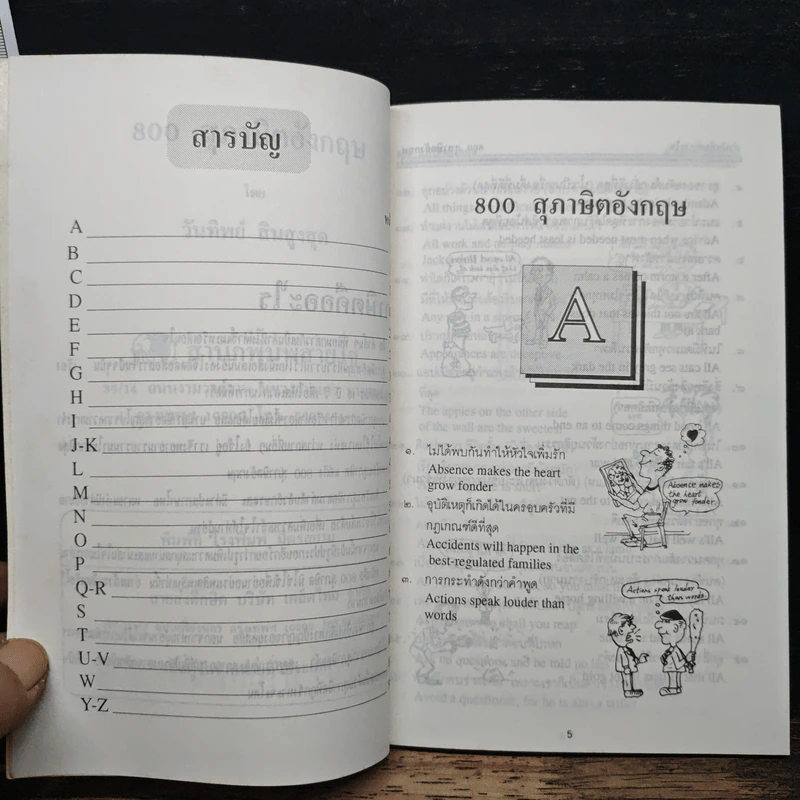 สารบัญ
A
B
C
D
E
F
G
H
I
J-K
L
M
N
O
P
Q-R
S
T
U-V
W
Y-Z
800 สุภาษิตอังกฤษ
A
๑. ไม่ได้พบกันทำให้หัวใจเพิ่มรัก
Absence makes the heart
grow fonder
๒. อุบัติเหตุก็เกิดได้ในครอบครัวที่มี
กฎเกณฑ์ดีที่สุด
Accidents will happen in the
best-regulated families
๓. การกระทำดังกว่าคำพูด
Actions speak louder than
words
Absence makes
the heart
grow fonder.
Actions speak louder
than words.
5